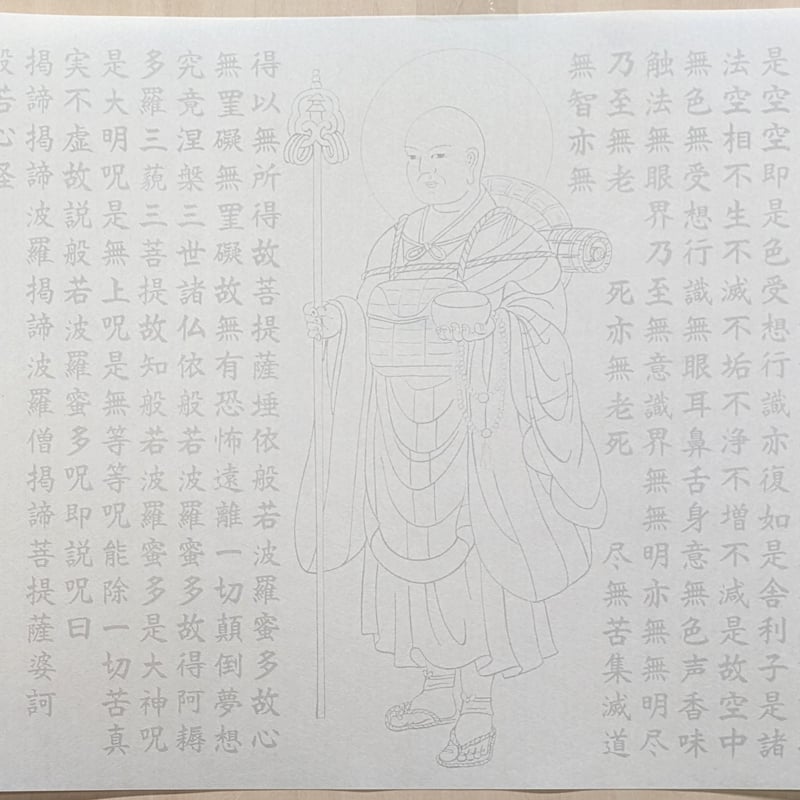 是空空即是色受想行識亦復如是舎利子是諸
法空相不生不滅不垢不浄不増不減是故空中
無色無受想行識無眼耳鼻舌身意無色声香味
触法無眼界乃至無意識界無無明亦無無明尽
乃至無老 死亦無老死 尽無苦集滅道
無智亦無
得以無所得故菩提薩埵依般若波羅蜜多故心
無罣礙無罣礙故無有恐怖遠離一切顛倒夢想
究竟涅槃三世諸仏依般若波羅蜜多故得阿耨
多羅三藐三菩提故知般若波羅蜜多是大神呪
是大明呪是無上呪是無等等呪能除一切苦真
実不虚故説般若波羅蜜多呪即説呪曰
揭諦揭諦波羅揭諦波羅僧揭諦菩提薩婆訶
般若心経